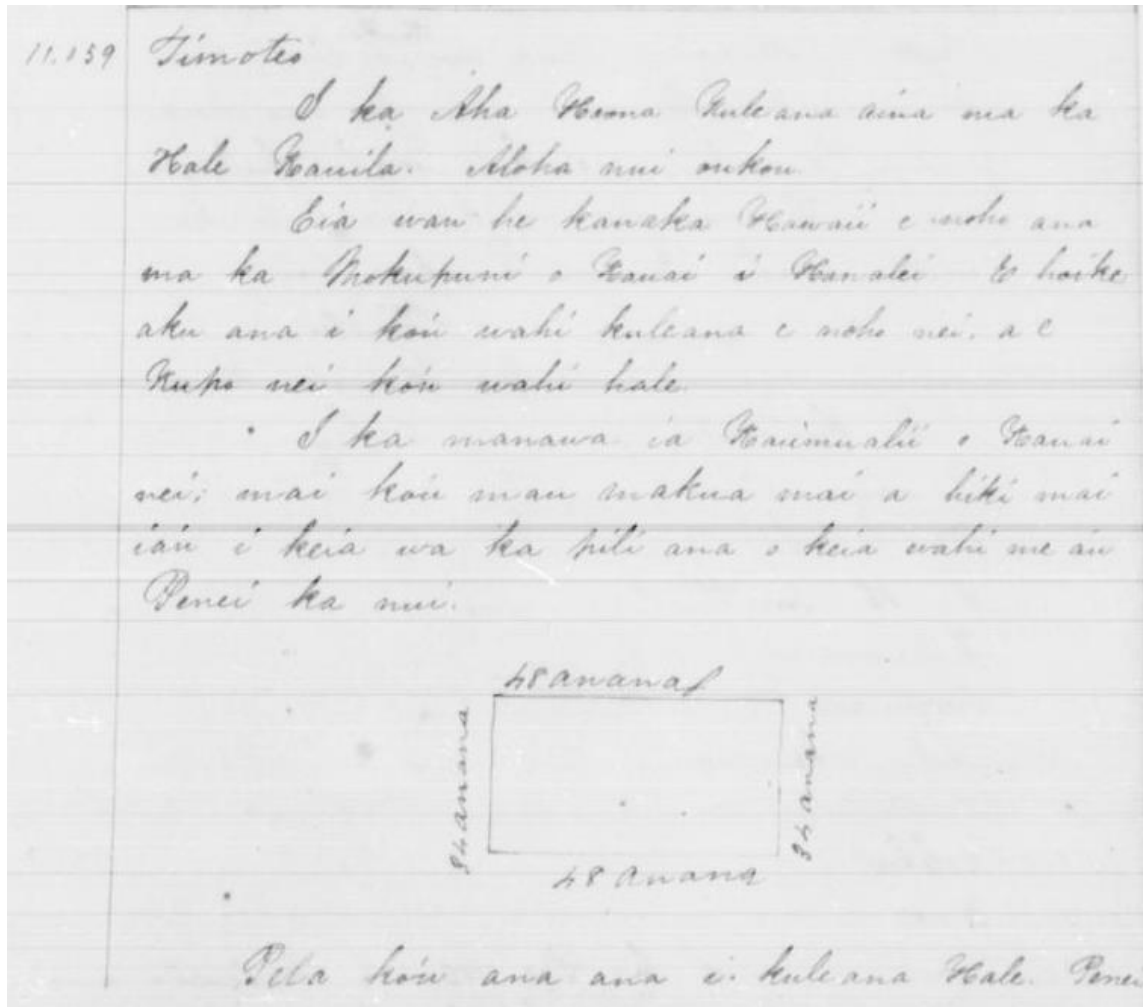 11.139 Timoteo
I ka Aha Hoona Kuleana aina ma ka
Hale Kauila. Aloha nui oukou.
Eia wau he kanaka Hawaii e noho ana
ma ka Mokupuni o Kauai i Hanalei E hoike
aku ana i koú wahi kuleana e noho nei. a e
Kupo nei koú wahi hale.
I ka manawa ia Kaumualii o Kauai
nei; mai koú mau makua mai a hiki mai
iaú i keia wa ka pili ana o keia wahi me aú
Penei ka nui.
48 anana
34 anana
34 anana
48 anana
Pela koú ana ana i. kuleana Hale. Penei